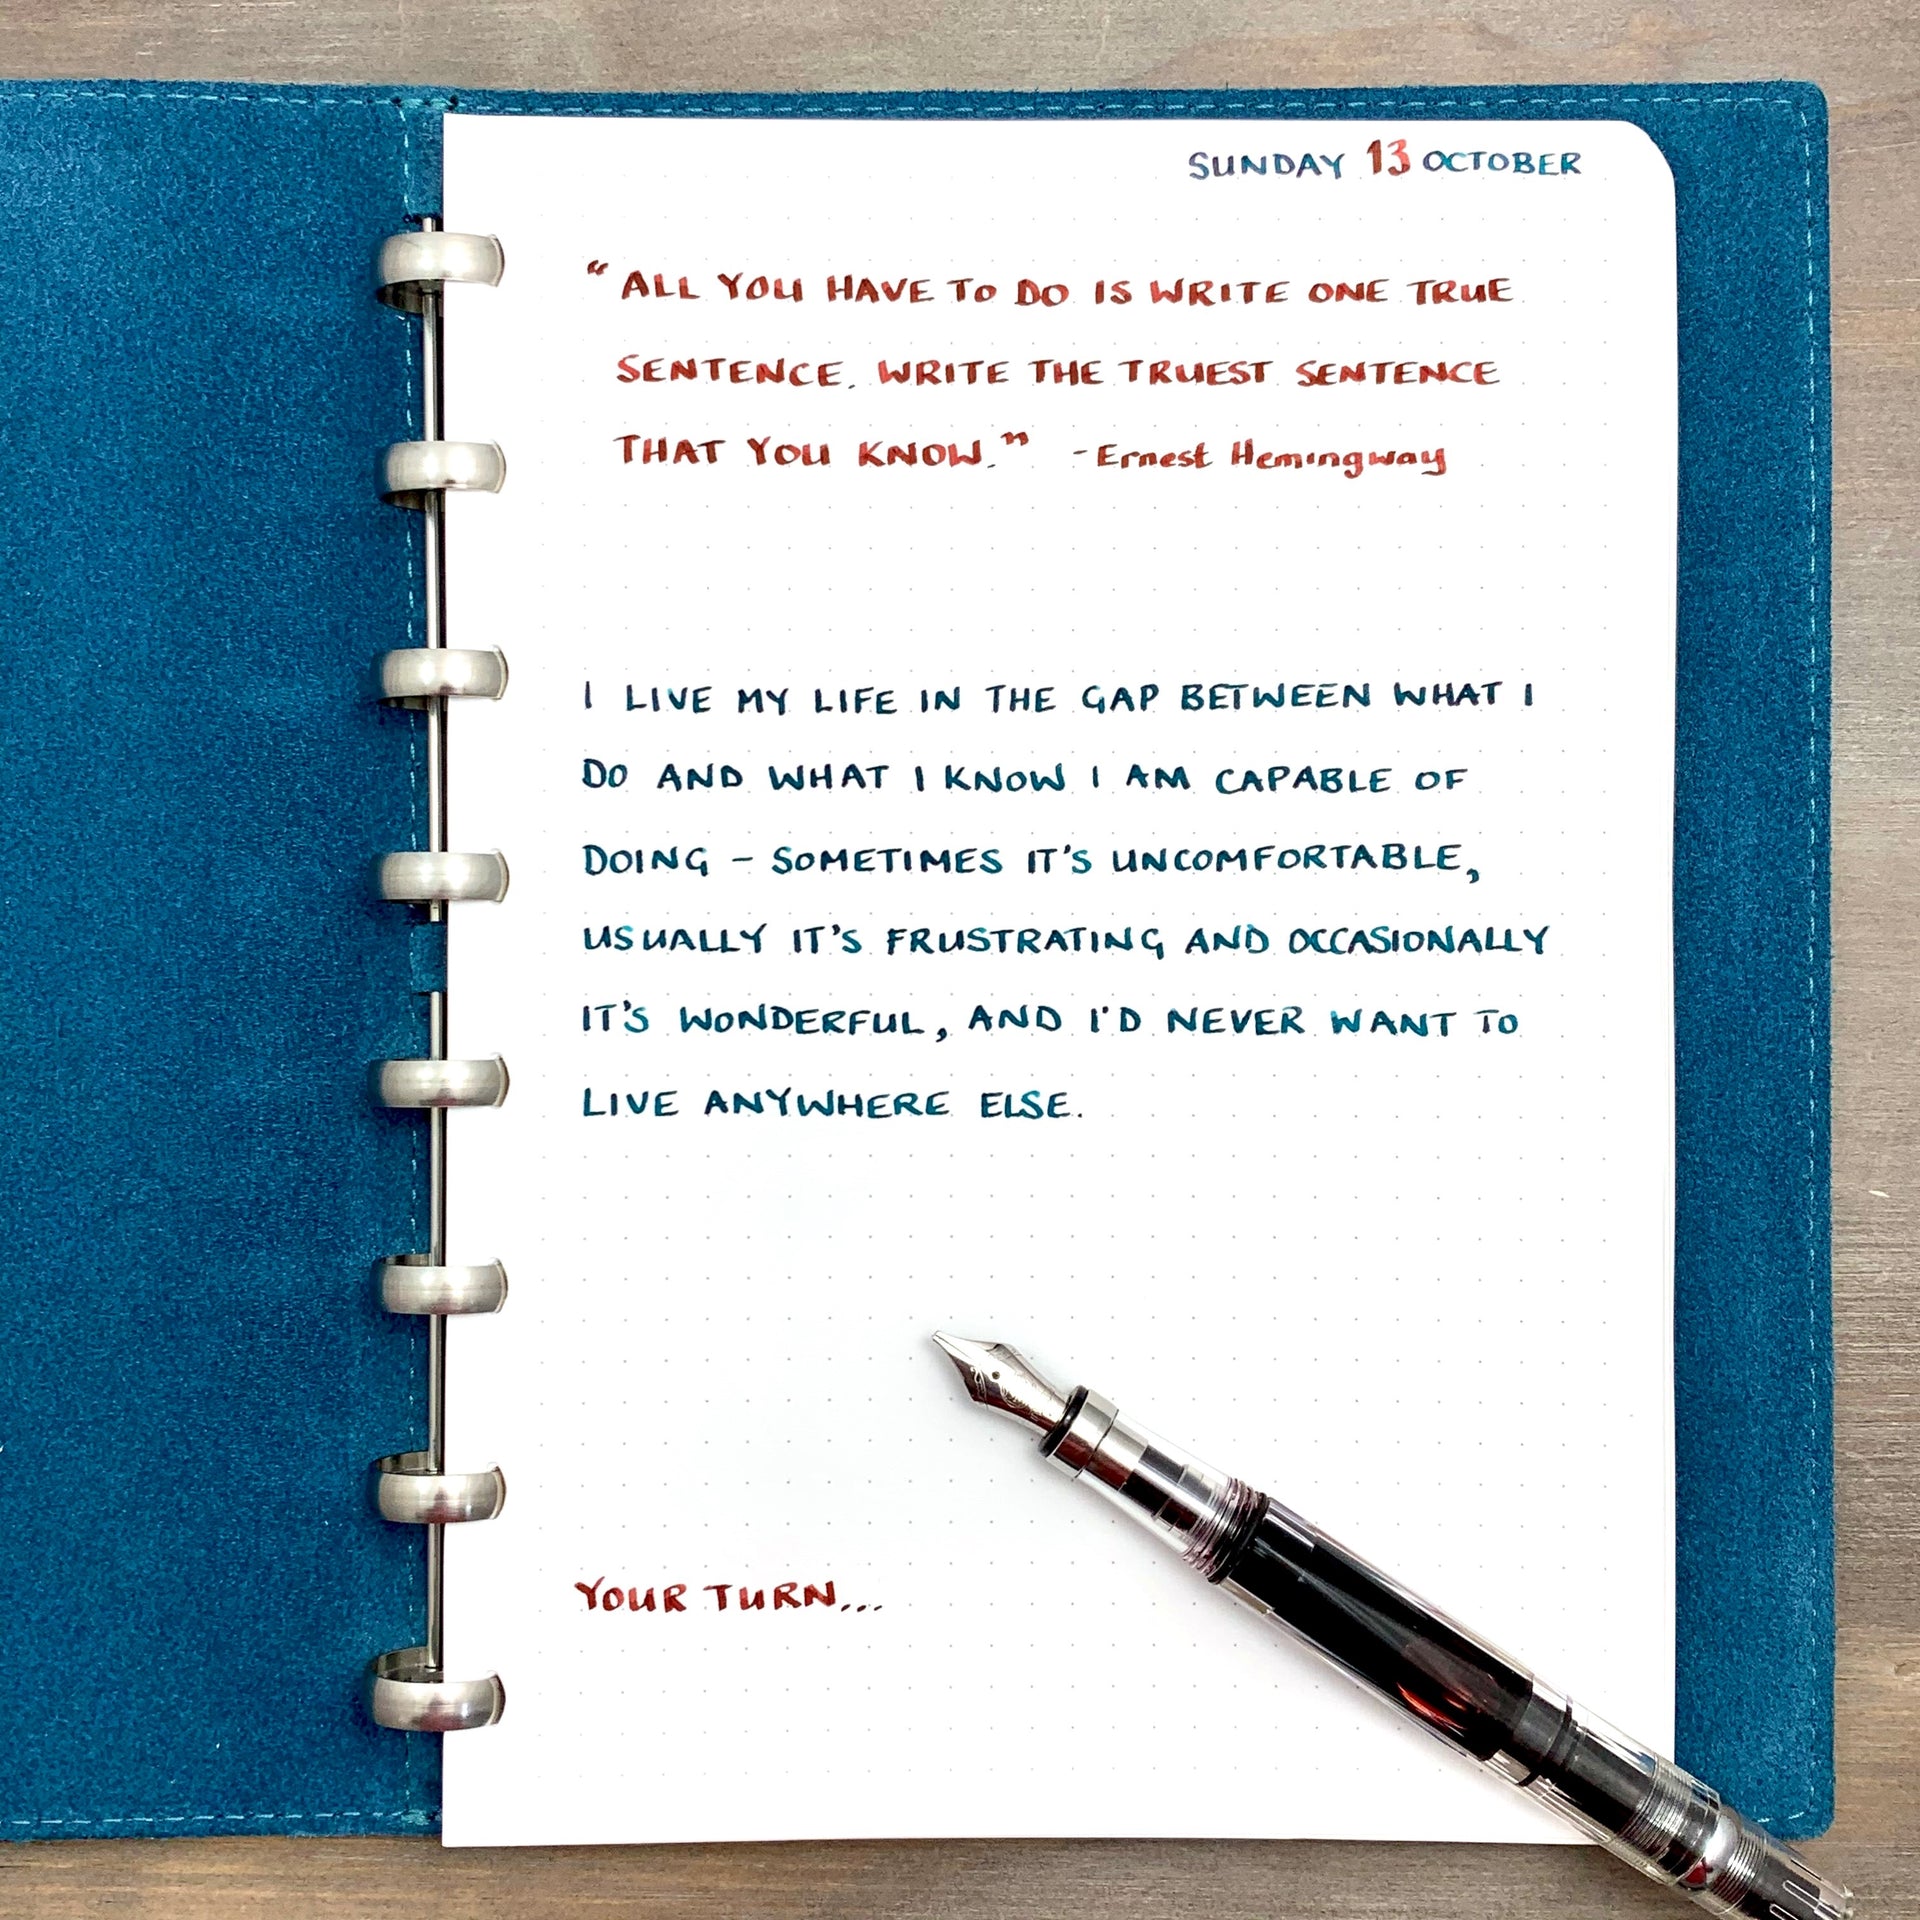 SUNDAY 13 OCTOBER
"ALL YOU HAVE TO DO IS WRITE ONE TRUE
SENTENCE. WRITE THE TRUEST SENTENCE
THAT YOU KNOW." - Ernest Hemingway
I LIVE MY LIFE IN THE GAP BETWEEN WHAT I
DO AND WHAT I KNOW I AM CAPABLE OF
DOING – SOMETIMES IT'S UNCOMFORTABLE,
USUALLY IT'S FRUSTRATING AND OCCASIONALLY
IT'S WONDERFUL, AND I'D NEVER WANT TO
LIVE ANYWHERE ELSE.
YOUR TURN...